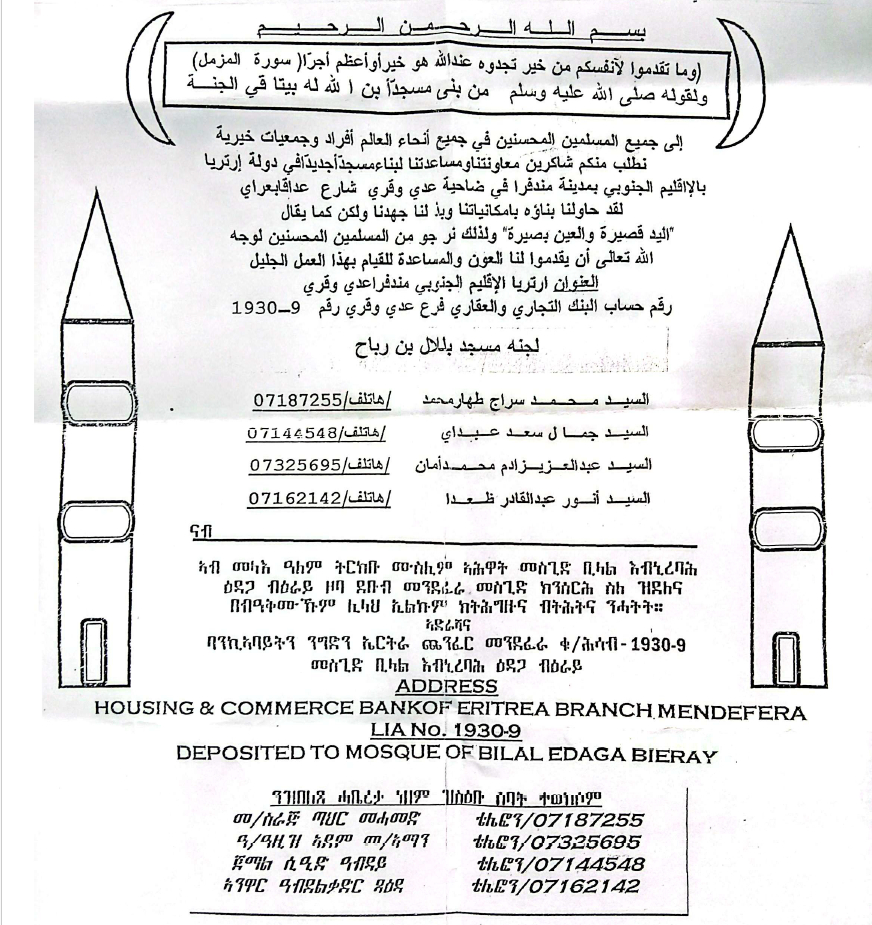 بسم الله الرحمن الرحيم
(وما تقدموا لآنفسكم من خير تجدوه عندالله هو خيرأوأعظم أجرًا( سورة المزمل)
ولقوله صلى الله عليه وسلم من بنى مسجدًا بن ا لله له بيتا قي الجنة
إلى جميع المسلمين المحسنين في جميع أنحاء العالم أفراد وجمعيات خيرية
نطلب منكم شاكرين معاونتناومساعدتنا لبناءمسجدًاجديدًافي دولة إرتريا
بالااقليم الجنوبي بمدينة مندفرا في ضاحية عدي وقري شارع عداقابعراي
لقد حاولنا بناؤه بامكانياتنا وبذ لنا جهدنا ولكن كما يقال
"اليد قصيرة والعين بصيرة" ولذلك نر جو من المسلمين المحسنين لوجه
الله تعالى أن يقدموا لنا العون والمساعدة للقيام بهذا العمل الجليل
العنوان ارتريا الإقليم الجنوبي مندفراعدي وقري
رقم حساب البنك التجاري والعقاري فرع عدي وقري رقم 9–1930
لجنه مسجد بللال بن رباح
السيد محمد سراج طهارمحمد /هاتلف/07187255
السيد جما ل سعد عبداي /هاتلف/07144548
السيد عبدالعزيزادم محمدأمان /هاتلف/07325695
السيد أنور عبدالقادر ظعدا /هاتلف/07162142
ናብ
ኣብ መላእ ዓለም ትርከቡ ሙስሊም ኣሕዋት መስጊድ ቢላል እብኒረባሕ
ዕዳጋ ብዕራይ ዞባ ደቡብ መንደፈራ መስጊድ ክንሰርሕ ስለ ዝደለና
በብዓቅሙኹም ሊላህ ኢልኩም ክትሕግዙና ብትሕትና ንሓትት።
ኣድራሻና
ባንኪኣባይትን ንግድን ኤርትራ ጨንፈር መንደፈራ ቁ/ሕሳብ-1930-9
መስጊድ ቢላል እብኒረባሕ ዕዳጋ ብዕራይ
ADDRESS
HOUSING & COMMERCE BANKOF ERITREA BRANCH MENDEFERA
LIA No. 1930-9
DEPOSITED TO MOSQUE OF BILAL EDAGA BIERAY
ንዝበለጸ ሓበሬታ ነዞም ዝስዕቡ ሰባት ተወከሶም
መ/ሰራጅ ጣህር መሓመድ ቴሌፎን/07187255
ዓ/ዓዚዝ ኣደም መ/ኣማን ቴሌፎን/07325695
ጀማል ሲዒድ ዓብደይ ቴሌፎን/07144548
ኣንዋር ዓብደልቃድር ጸዕዳ ቴሌፎን/07162142